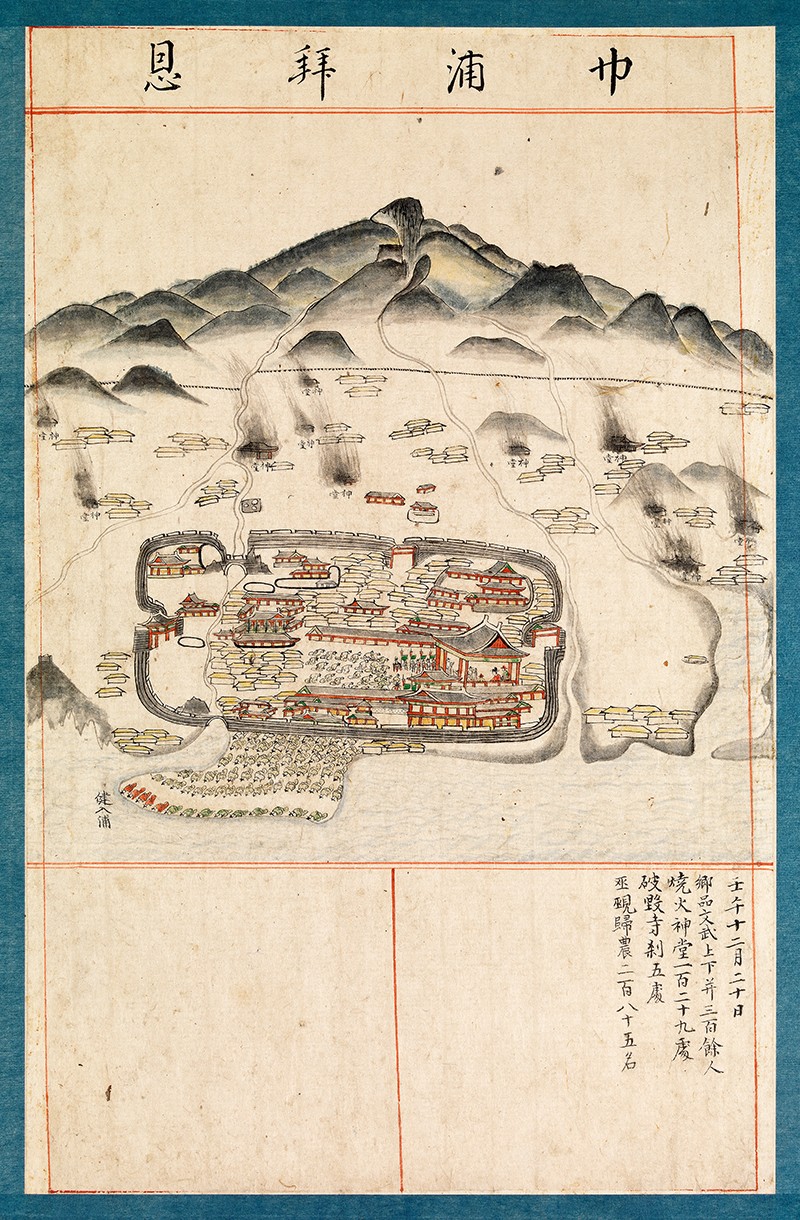 巾浦拜恩
神堂
神堂
神堂
神堂
神堂
神堂
神堂
神堂
神堂
神堂
神堂
健入浦
壬午十二月二十日
鄕品文武上下并三百餘人
燒火神堂一百二十九處
破毁寺刹五處
巫覡歸農二百八十五名